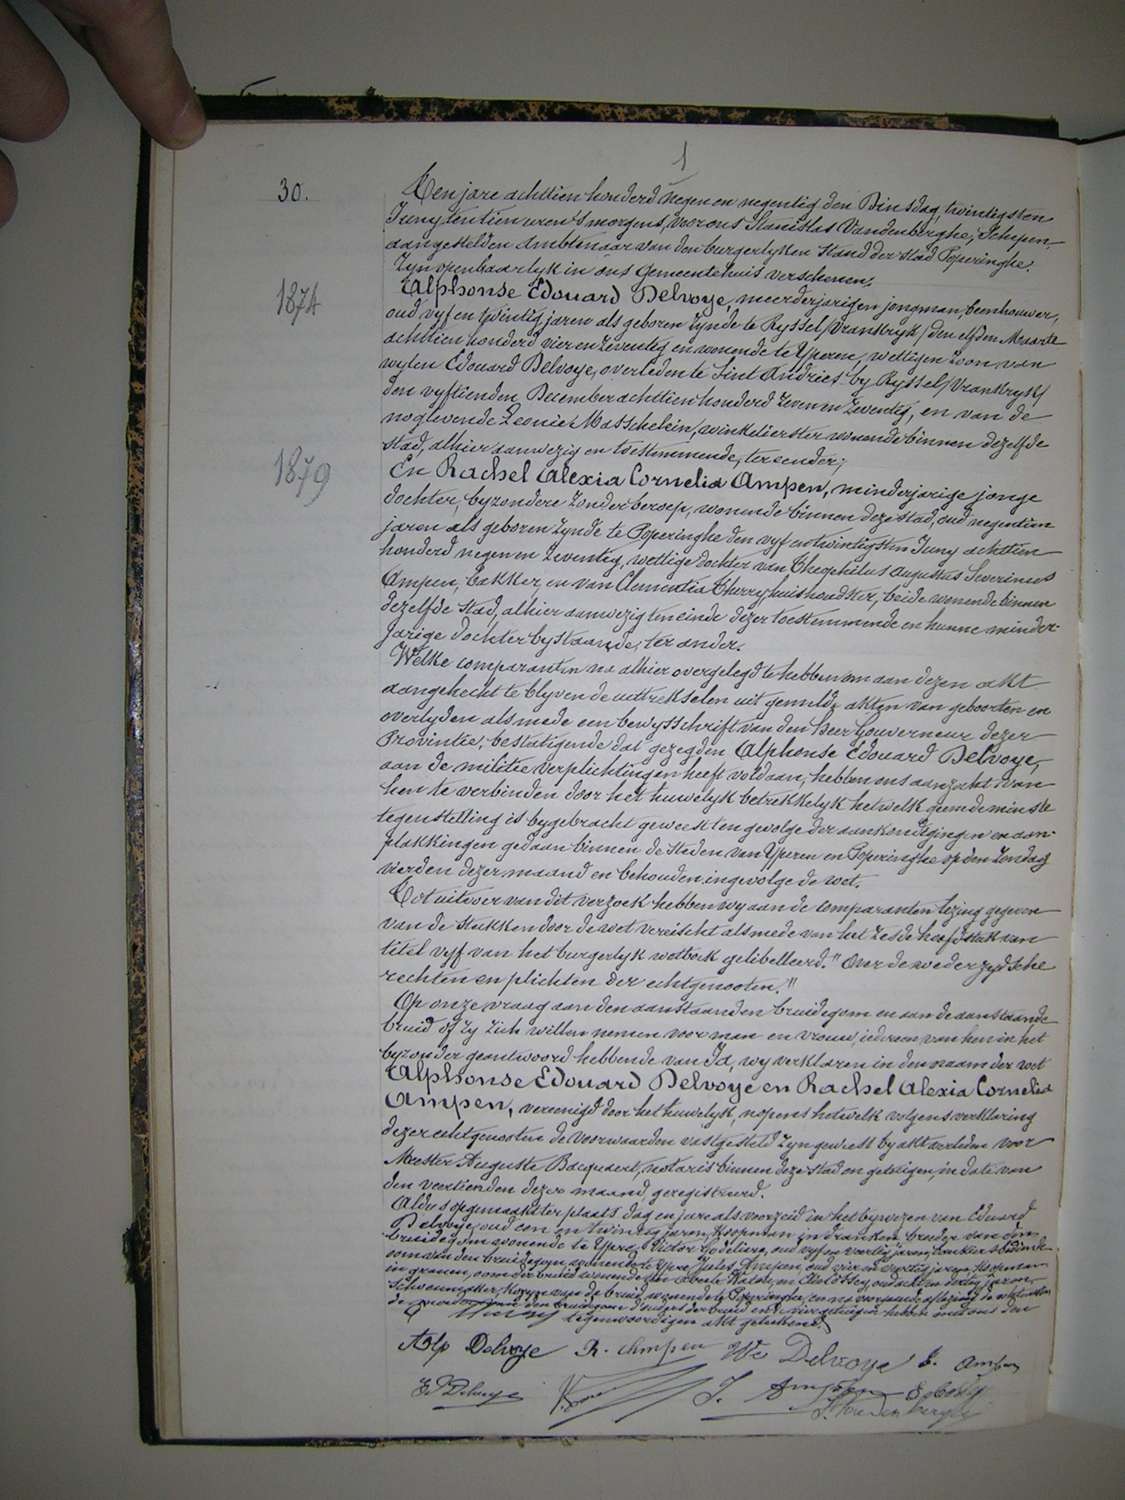 1
30.
Ten jare achttien honderd negen en negentig den Dinsdag, twintigsten
Juny ten tien uren 's morgens, voor ons Stanislas Vandenberghe, Schepen,
aangestelden Ambtenaar van den burgerlyken Stand der stad Poperinghe.
Zyn openbaarlyk in ons Gemeentehuis verschenen,
1874
Alphonse Edouard Delvoye, meerderjarigen jongman, beenhouwer,
oud vyf en twintig jaren als geboren zynde te Ryssel /Vrankryk/ den elfden Maarte
achttien honderd vier en zeventig en wonende te Yperen, wettigen zoon van
wylen Edouard Delvoye, overleden te Sint Andries by Ryssel /Vrankryk/
den vyftienden December achttien honderd zeven en zeventig, en van de
nog levende Leonie Masschelein, winkelierster wonende binnen dezelfde
stad, alhier aanwezig en toestemmende, ter eender;
1879
En Rachel Alexia Cornelia Ampen, minderjarige jonge
dochter, byzondere zonder beroep, wonende binnen deze stad, oud negentien
jaren als geboren zynde te Poperinghe den vyf entwintigsten Juny achttien
honderd negen en zeventig, wettige dochter van Theophilus Augustus Severinus
Ampen, bakker, en van Clementia Therry, huishoudster, beide wonende binnen
dezelfde stad, alhier aanwezig ten einde dezer toestemmende en hunne minder-
jarige dochter bystaande, ter ander.
Welke comparanten na alhier overgelegd te hebben om aan dezen akt
aangehecht te blyven de uittrekselen uit gemelde akten van geboorten en
overlyden alsmede een bewysschrift van den Heer Gouverneur dezer
Provintie, bestatigende dat gezegden Alphonse Edouard Delvoye,
aan de militie verplichtingen heeft voldaan, hebben ons aanzocht van
hen te verbinden door het huwelyk betrekkelyk hetwelk geene de minste
tegenstelling is bygebracht geweest ten gevolge der aankondigingen en aan-
plakkingen gedaan binnen de steden van Yperen en Poperinghe op den Zondag
vierden dezer maand en behouden ingevolge de wet.
Tot uitvoer van dit verzoek hebben wy aan de comparanten lezing gegeven
van de stukken door de wet vereischt alsmede van het zesde hoofdstuk van
titel vyf van het burgerlyk wetboek gelibelleerd: "Over de wederzydsche
rechten en plichten der echtgenooten."
Op onze vraag aan den aanstaanden bruidegom en aan de aanstaande
bruid of zy zich willen nemen voor man en vrouw, iedereen van hen in het
byzonder geantwoord hebbende van Ja, wy verklaren in den naam der wet
Alphonse Edouard Delvoye en Rachel Alexia Cornelia
Ampen, vereenigd door het huwelyk, nopens hetwelk volgens verklaring
dezer echtgenooten de voorwaarden vastgesteld zyn geweest by akt verleden voor
Meester Auguste Bacquaert, notaris binnen deze stad en getuigen, in date van
den veertienden dezer maand, geregistreerd.
Aldus opgemaakt ter plaats dag en jare als voorzeid in het bywezen van Eduard
Delvoye, oud een en twintig jaren, Koopman in dranken, broeder van den
bruidegom wonende te Ypre, Victor oud vyf en veertig jaren,
oom van den bruidegom wonende te Ypre, Jules Ampen, oud vier en veertig jaren, Koopman
in granen, oom der bruid wonende en oud acht en dertig jaren,
Schoenmaker, der bruid wonende te Poperinghe, en na voorgaande aflezing de echtgenooten
de moeder van den bruidegom d'ouders der bruid en de vier getuigen hebben met ons den
tegenwoordigen akt geteekend.
Alp Delvoye R. Ampen We Delvoye T. Ampen
Ed Delvoye J. Ampen
S. Vandenberghe